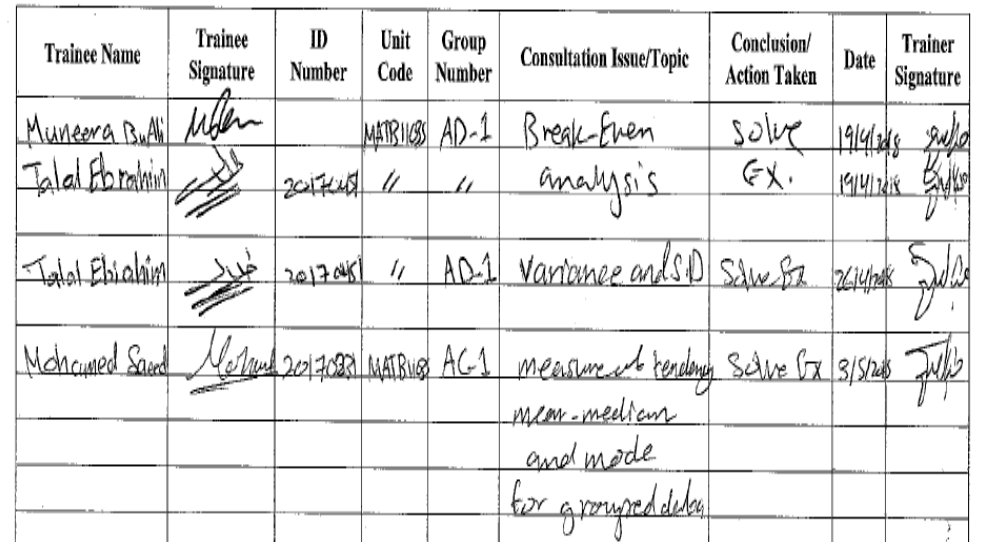 Trainee Name Trainee Signature ID Number Unit Code Group Number Consultation Issue/Topic Conclusion/ Action Taken Date Trainer Signature
Muneera BuAli AD-1 Break-Even Solve 19/4/2018
Talal Ebrahim 〃 〃 analysis EX. 19/4/2018
Talal Ebrahim 〃 AD-1 Variance and S.D Solve Ex 26/4/2018
Mohamed Saeed AG-1 measure tendency Solve Ex 3/5/2018
mean-median
and mode
for groupred data